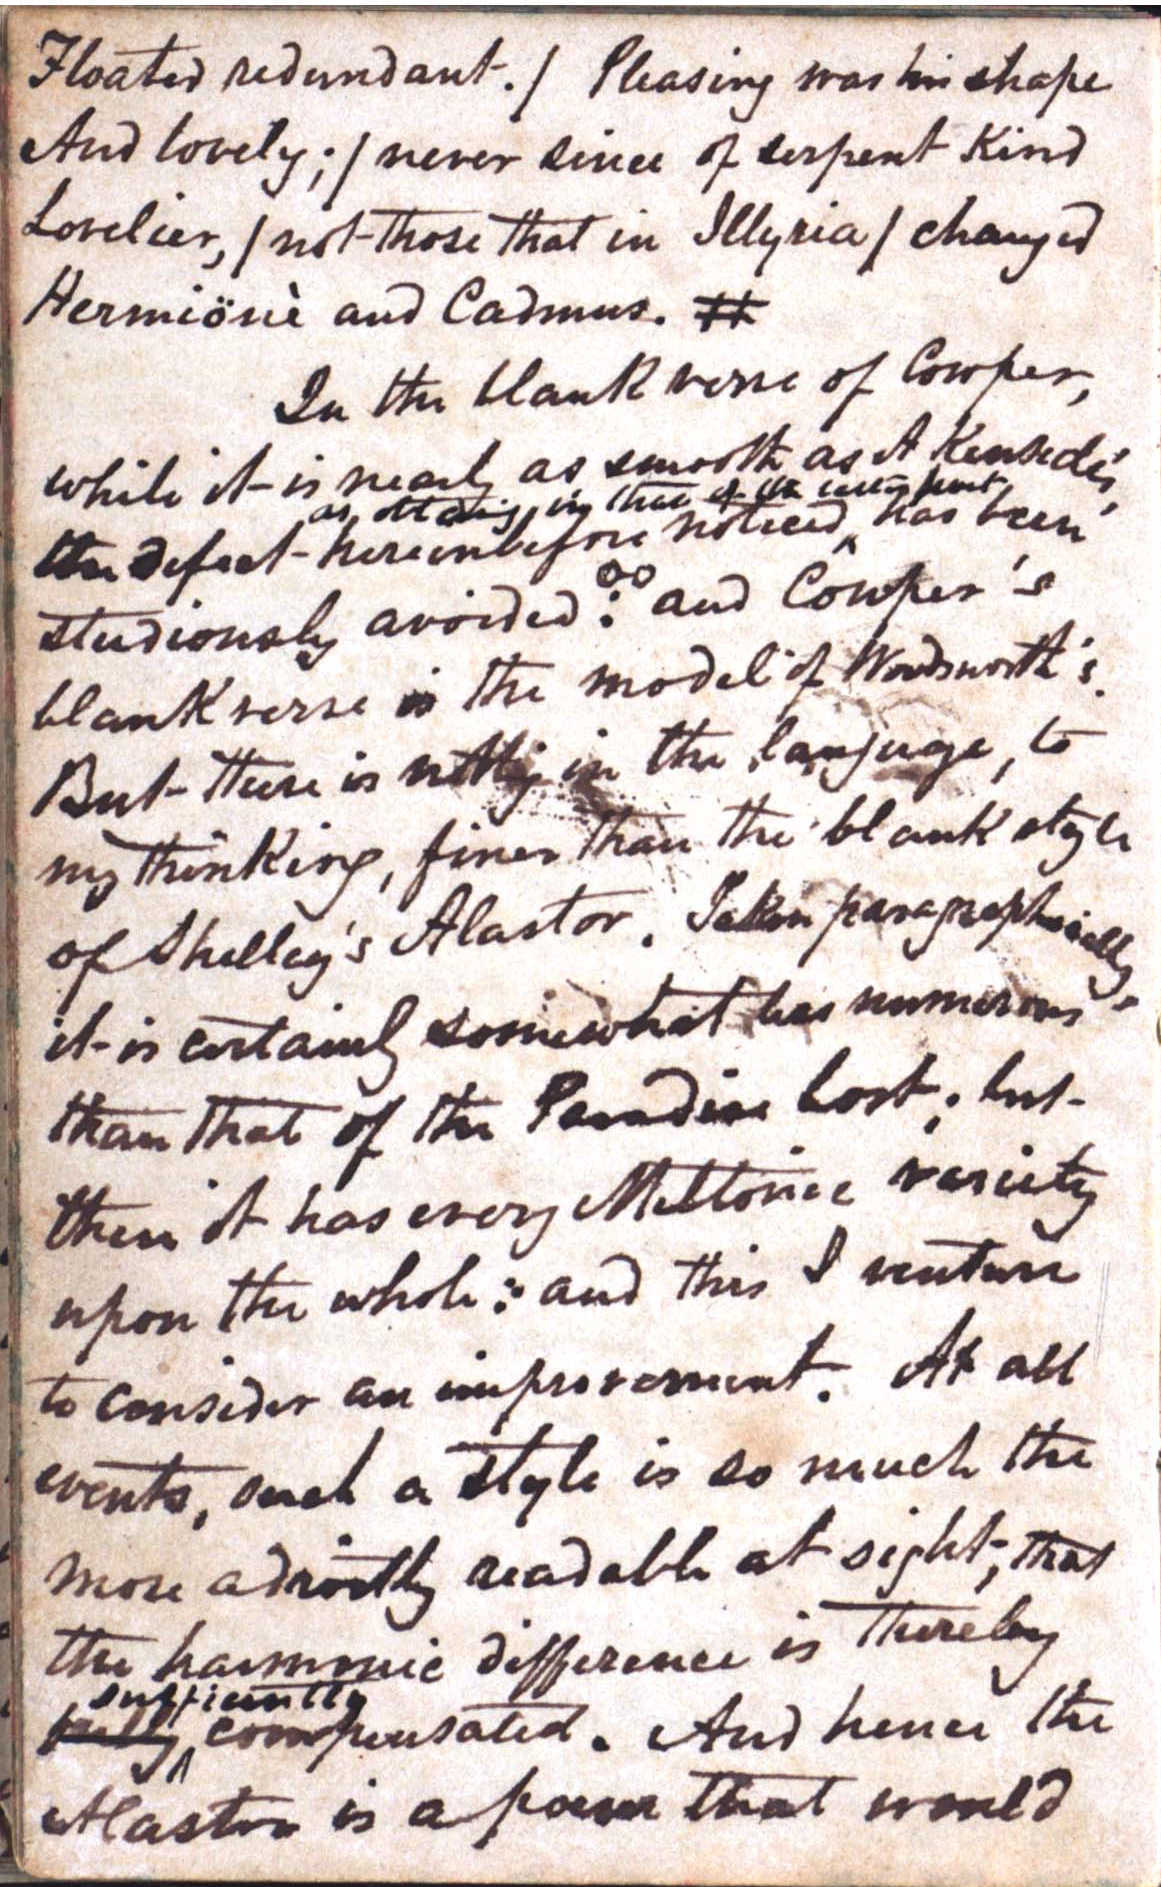 Floated redundant. / Pleasing was his shape
And lovely; / never since of serpent kind
Lovelier, / not those that in Illyria / changed
Hermiönè and Cadmus. #
In the blank verse of Cowper,
while it is nearly as smooth as A Kenside's,
as attaching in that of the latter poet,
the defect hereinbefore noticed, has been
studiously avoided: and Cowper's
blank verse is the model of Wordsworth's.
But there is nothing in the language, to
my thinking, finer than the blank style
of Shelley's Alastor. Taken paragraphically,
it is certainly somewhat less numerous
than that of the Paradise Lost; but
then it has every Miltonic variety
upon the whole: and this I venture
to consider an improvement. At all
events, such a style is so much the
more adroitly readable at sight, that
the harmonic difference is thereby
sufficiently
fully compensated. And hence the
Alastor is a poem that would